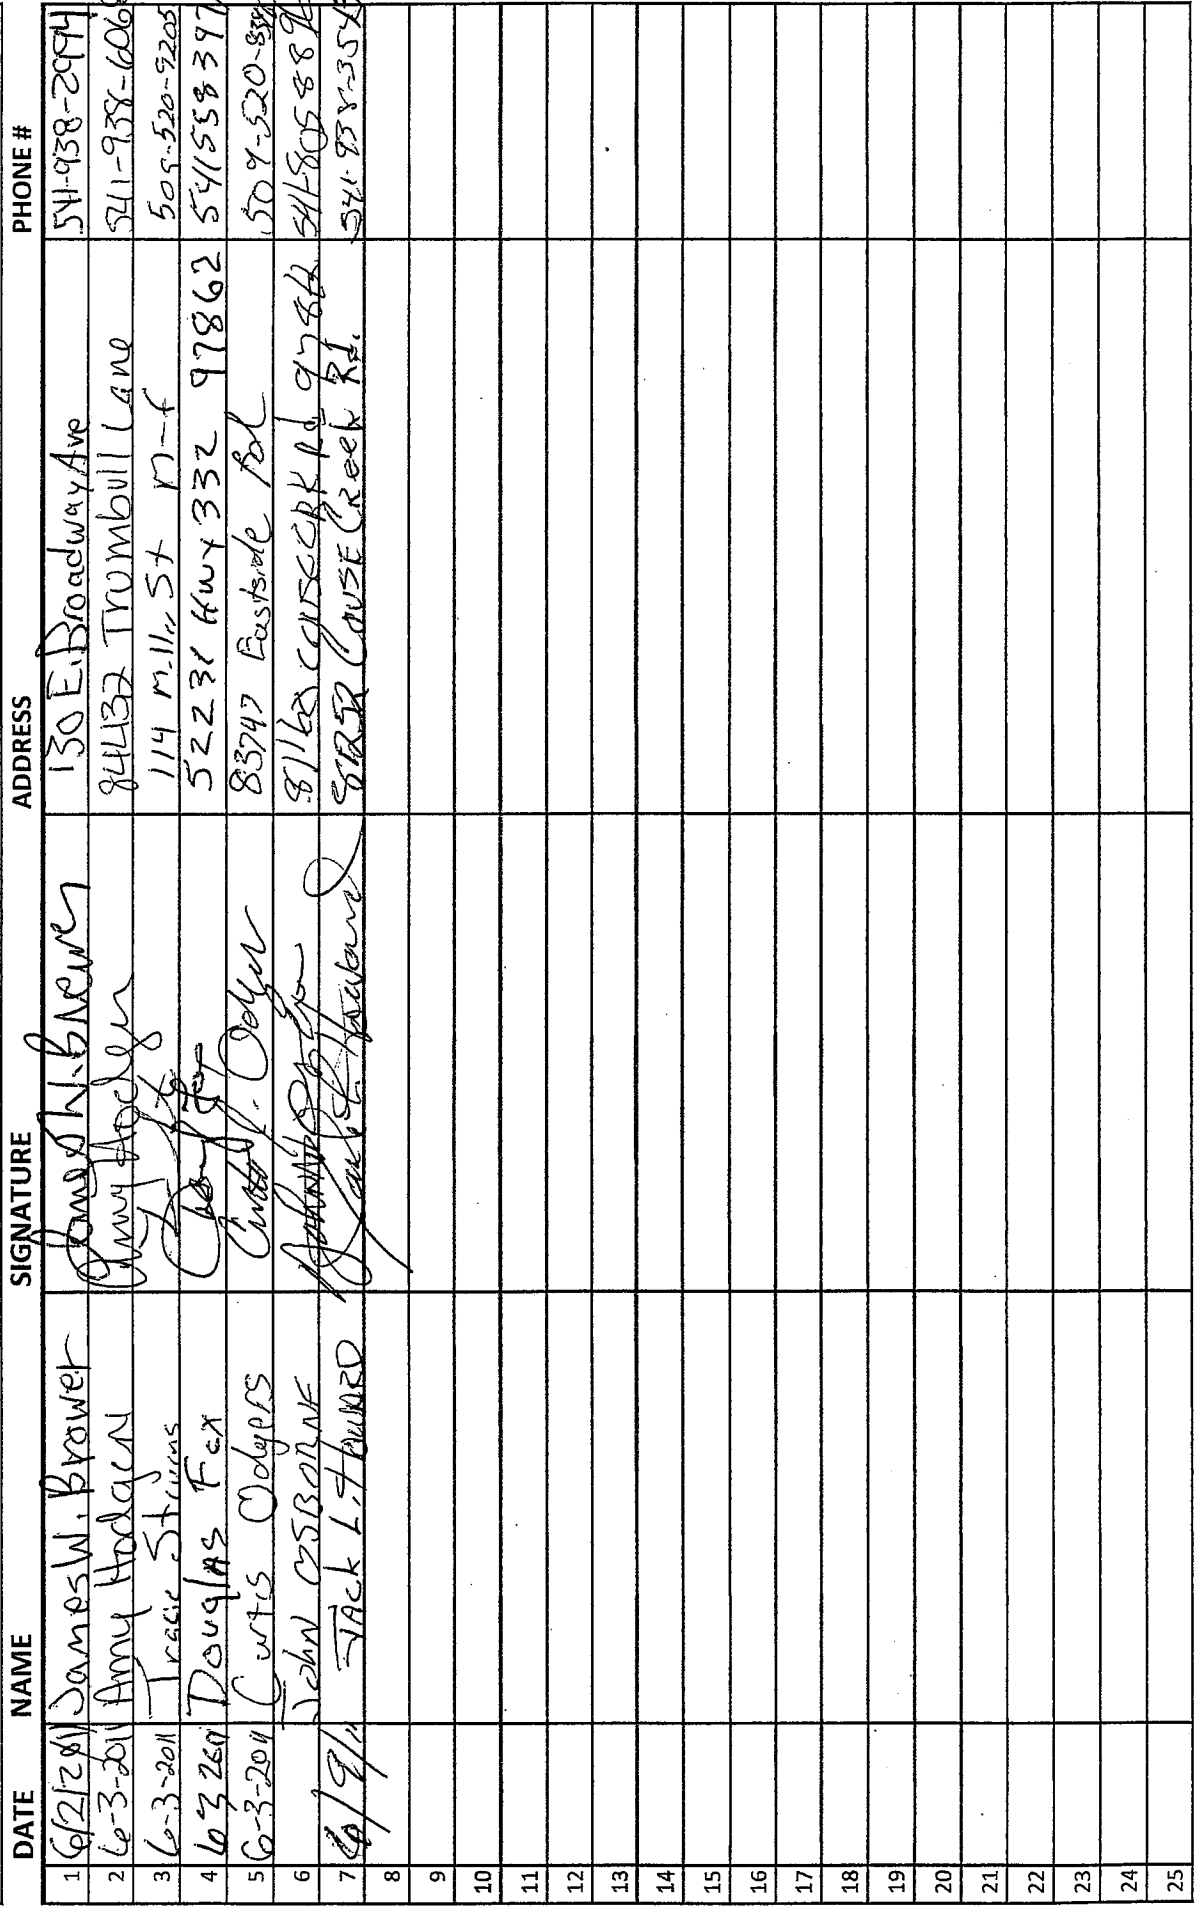 DATE NAME SIGNATURE ADDRESS PHONE #
1 6/2/2011 James W. Brower James W. Brower 130 E. Broadway Ave 541-938-2994
2 6-3-2011 Amy Hodgen Amy Hodgen 84432 Trumbull Lane 541-938-606
3 6-3-2011 Tracie 114 Mill St m-f 509-520-9205
4 6 3 2011 Douglas Fox Doug Fox 52231 Hwy 332 97862 541558397
5 6-3-2011 Curtis Odgers Curtis Odgers 83747 Eastside Rd 509-520-
6 John OSBORNE John Osborne COUSE CRK Rd 541-805889
7 6/9/11 JACK L. HOWARD Jack L. Howard COUSE CREEK Rd. 541-938-354
8
9
10
11
12
13
14
15
16
17
18
19
20
21
22
23
24
25